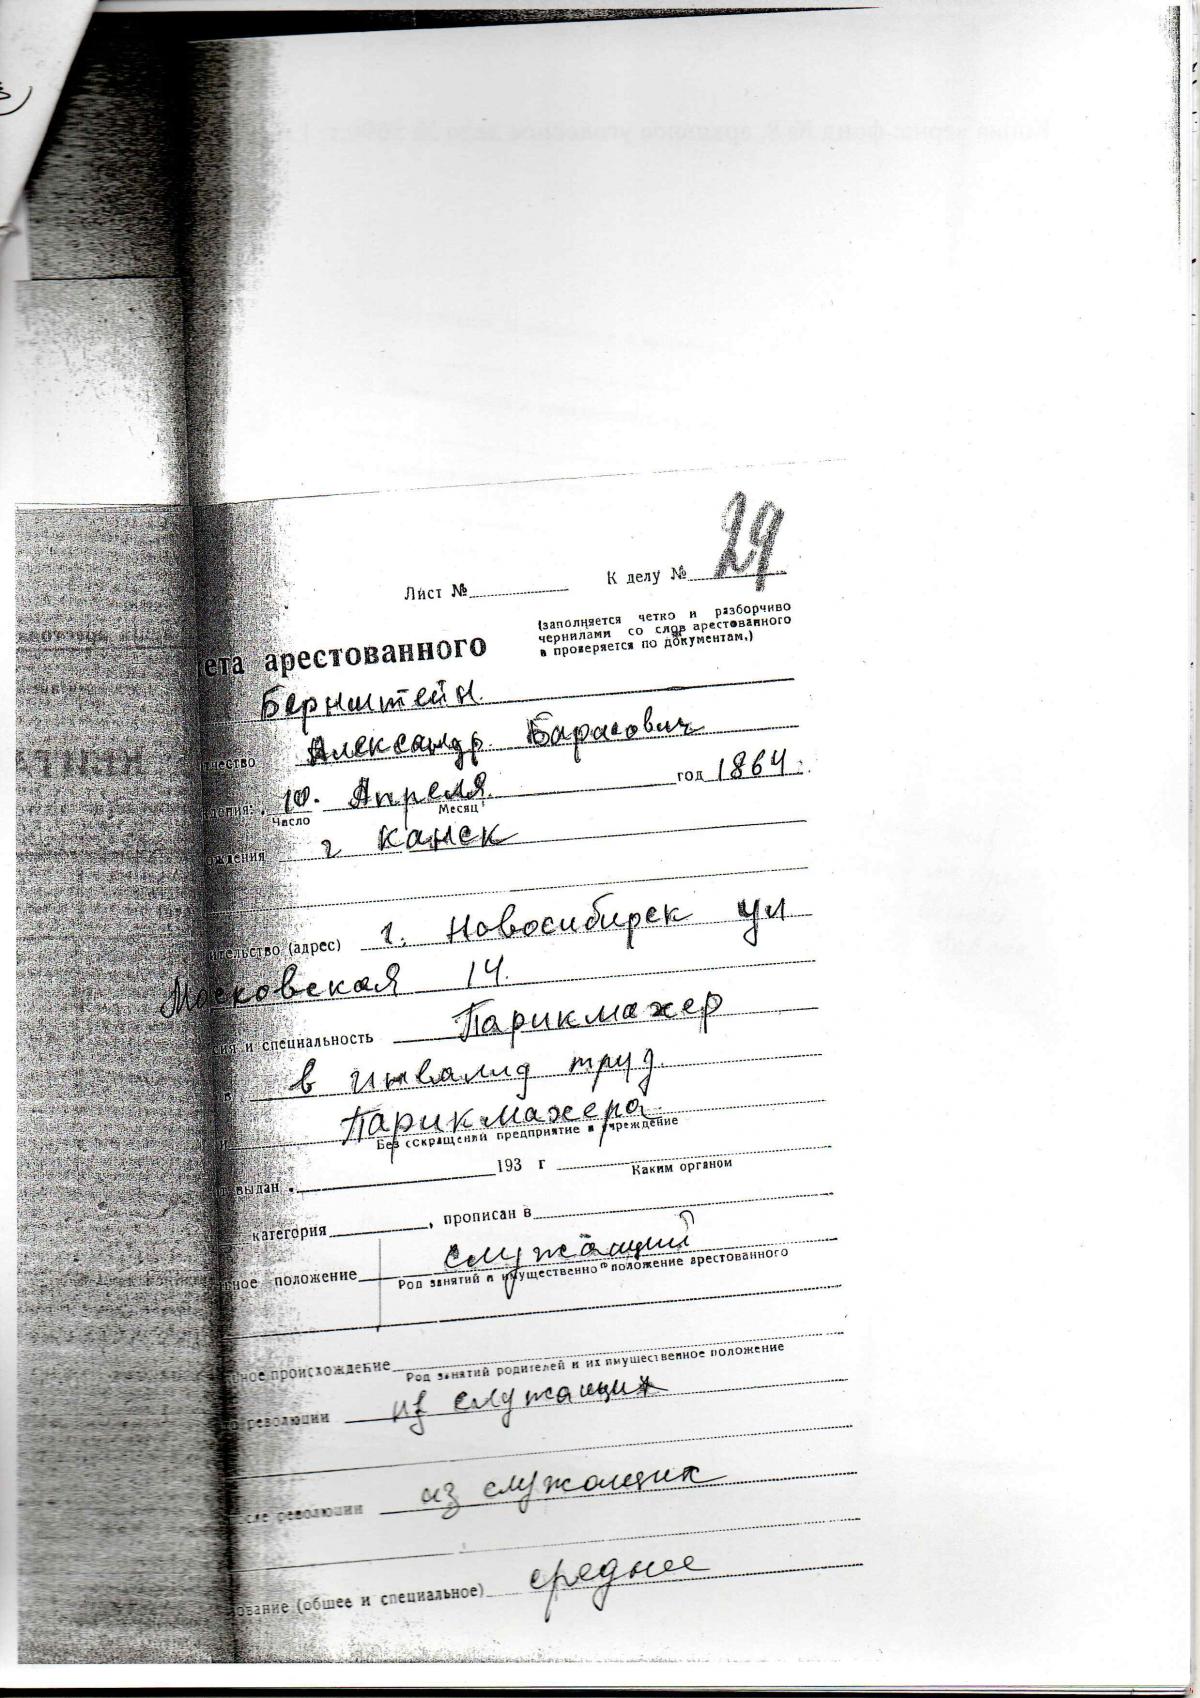 Лист № К делу № 29
(заполняется четко и разборчиво
чернилами со слов арестованного
и проверяется по документам.)
кета арестованного
Бернштейн.
чество Александр. Барасович
дения: 10. Апреля год 1864.
Число Месяц
ождения г Канск
ительство (адрес) г. Новосибирск ул
Московская 14.
сия и специальность Парикмахер
в инвалид труд.
Парикмахера.
Без сокращений предприятие и учреждение
выдан 193 г
Каким органом
категория , прописан в
ное положение служащий
Род занятий и имущественное положение арестованного
ное происхождение
Род занятий родителей и их имущественное положение
до революции из служащих
сле революции из служащих
ование (общее и специальное) среднее